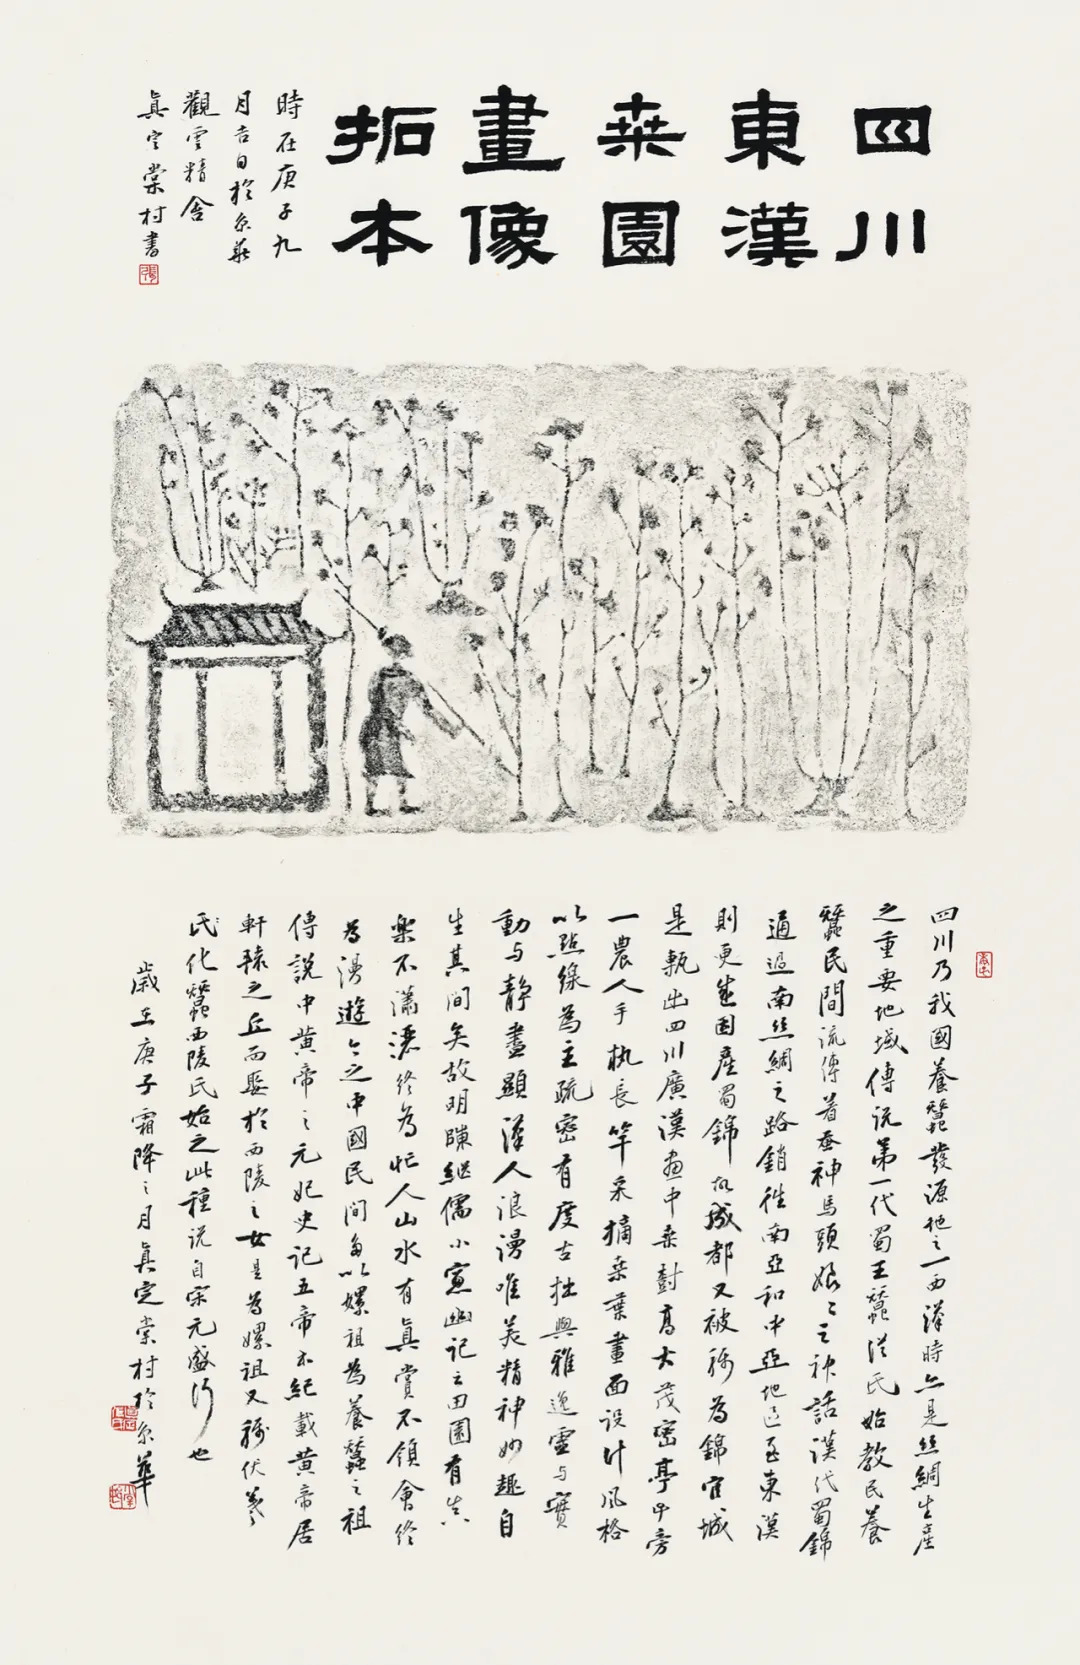 四川
東漢
桒園
畫像
拓本
時在庚子九
月吉日於京華
觀雲精舍
真定棠村書
四川乃我國養蠶發源地之一西漢時亦是丝綢生産
之重要地域傳说第一代蜀王蠶叢氏始教民養
蠶民間流傳着蚕神馬頭娘之神話漢代蜀錦
通過南丝綢之路銷徃南亞和中亞地區至東漢
則更生産蜀錦故成都又被稱為錦官城
是甎出四川廣漢畫中桒樹髙大茂密亭中旁
一農人手執長竿采摘桒葉畫面设计风格
以點線為主疏密有度古拙與雅逸靈与實
動与靜盡顯漢人浪漫唯美精神妙趣自
生其間矣故明陳継儒小窓幽记云田園有真
樂不瀟灑终為忙人山水有真賞不領會终
為漫遊今之中國民间多以嫘祖為養蠶之祖
傳説中黄帝之元妃史记五帝本紀載黄帝居
軒轅之丘而娶於西陵之女是為嫘祖又稱伏羲
氏化蠶西陵氏始之此種说自宋元盛行也
歲在庚子霜降之月真定棠村於京華